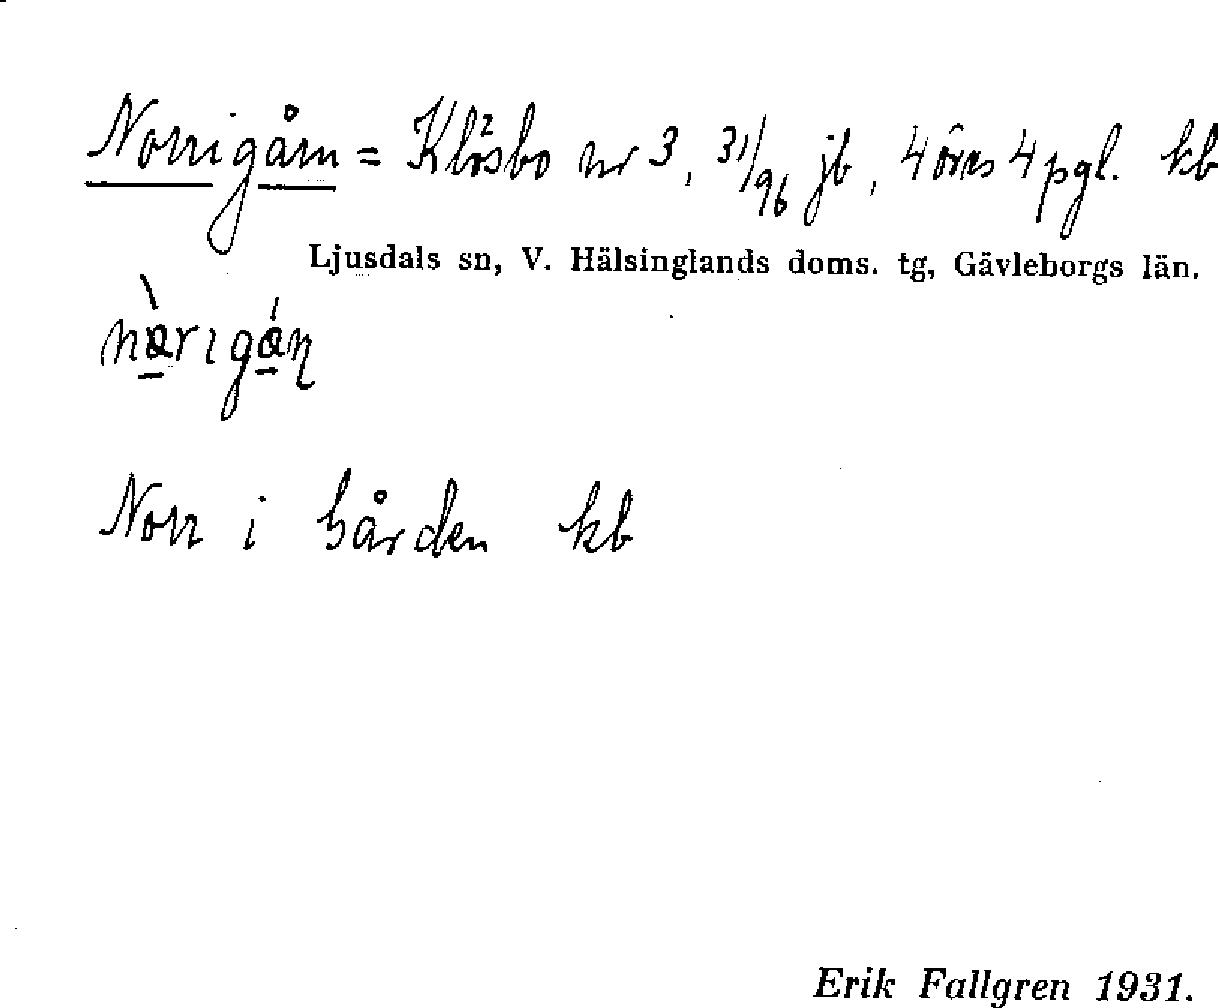 Norrigårn = Klösbo nr 3, 31/96 jb, 4 öres 4 pgl. kb
Ljusdals sn, V. Hälsinglands doms. tg, Gävleborgs län.
Norr i hården kb
Erik Fallgren 1931.